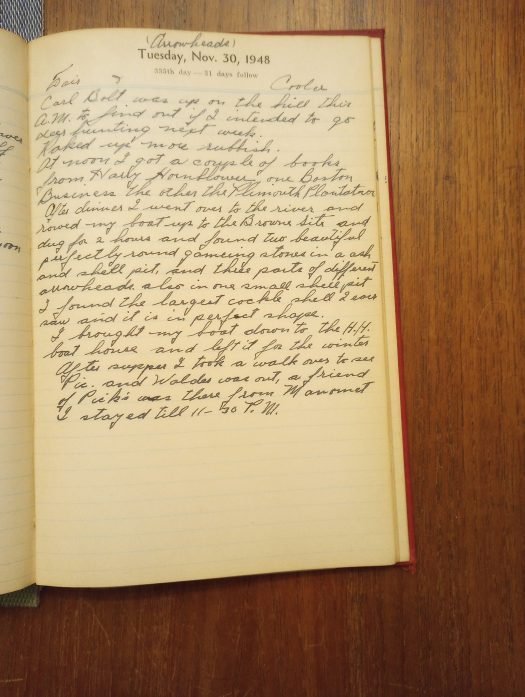 (Arrowheads)
Tuesday, Nov. 30, 1948
335th day — 31 days follow
Fair Cooler
Carl Bolt was up on the hill this
A.M. to find out if I intended to go
deer hunting next week.
Raked up more rubbish.
At noon I got a couple of books
from Harry Hornflower, one Boston
Business the other the Plimouth Plantation
After dinner I went over to the river and
rowed my boat up to the Browne Site and
dug for 2 hours and found two beautiful
perfectly round gameing stones in a ash
and shell pit, and three parts of different
arrowheads. also in one small shell pit
I found the largest cockle shell I ever
saw and it is in perfect shape.
I brought my boat down to the H.H.
boat house and left it for the winter
After supper I took a walk over to see
Pic. and Waldes was out, a friend
of Pick's was there from Manomet
I stayed till 11-30 P.M.
noon